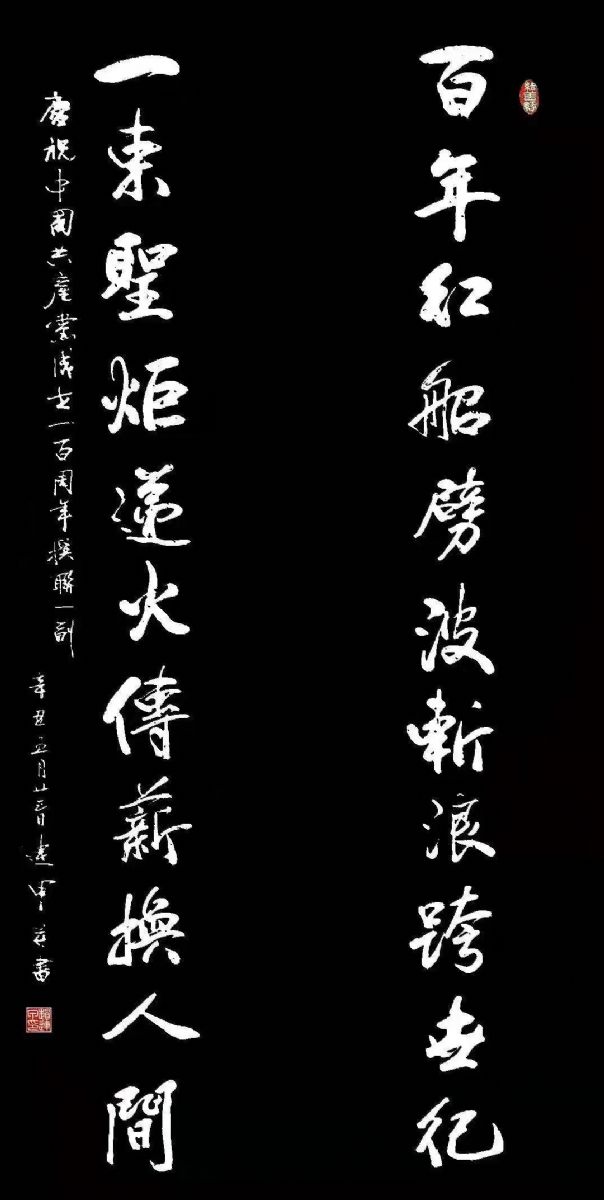 百年紅船劈波斬浪跨世紀
一束聖炬遞火傳薪換人間
慶祝中國共產黨成立一百周年撰聯一副
辛丑五月廿 建 并書